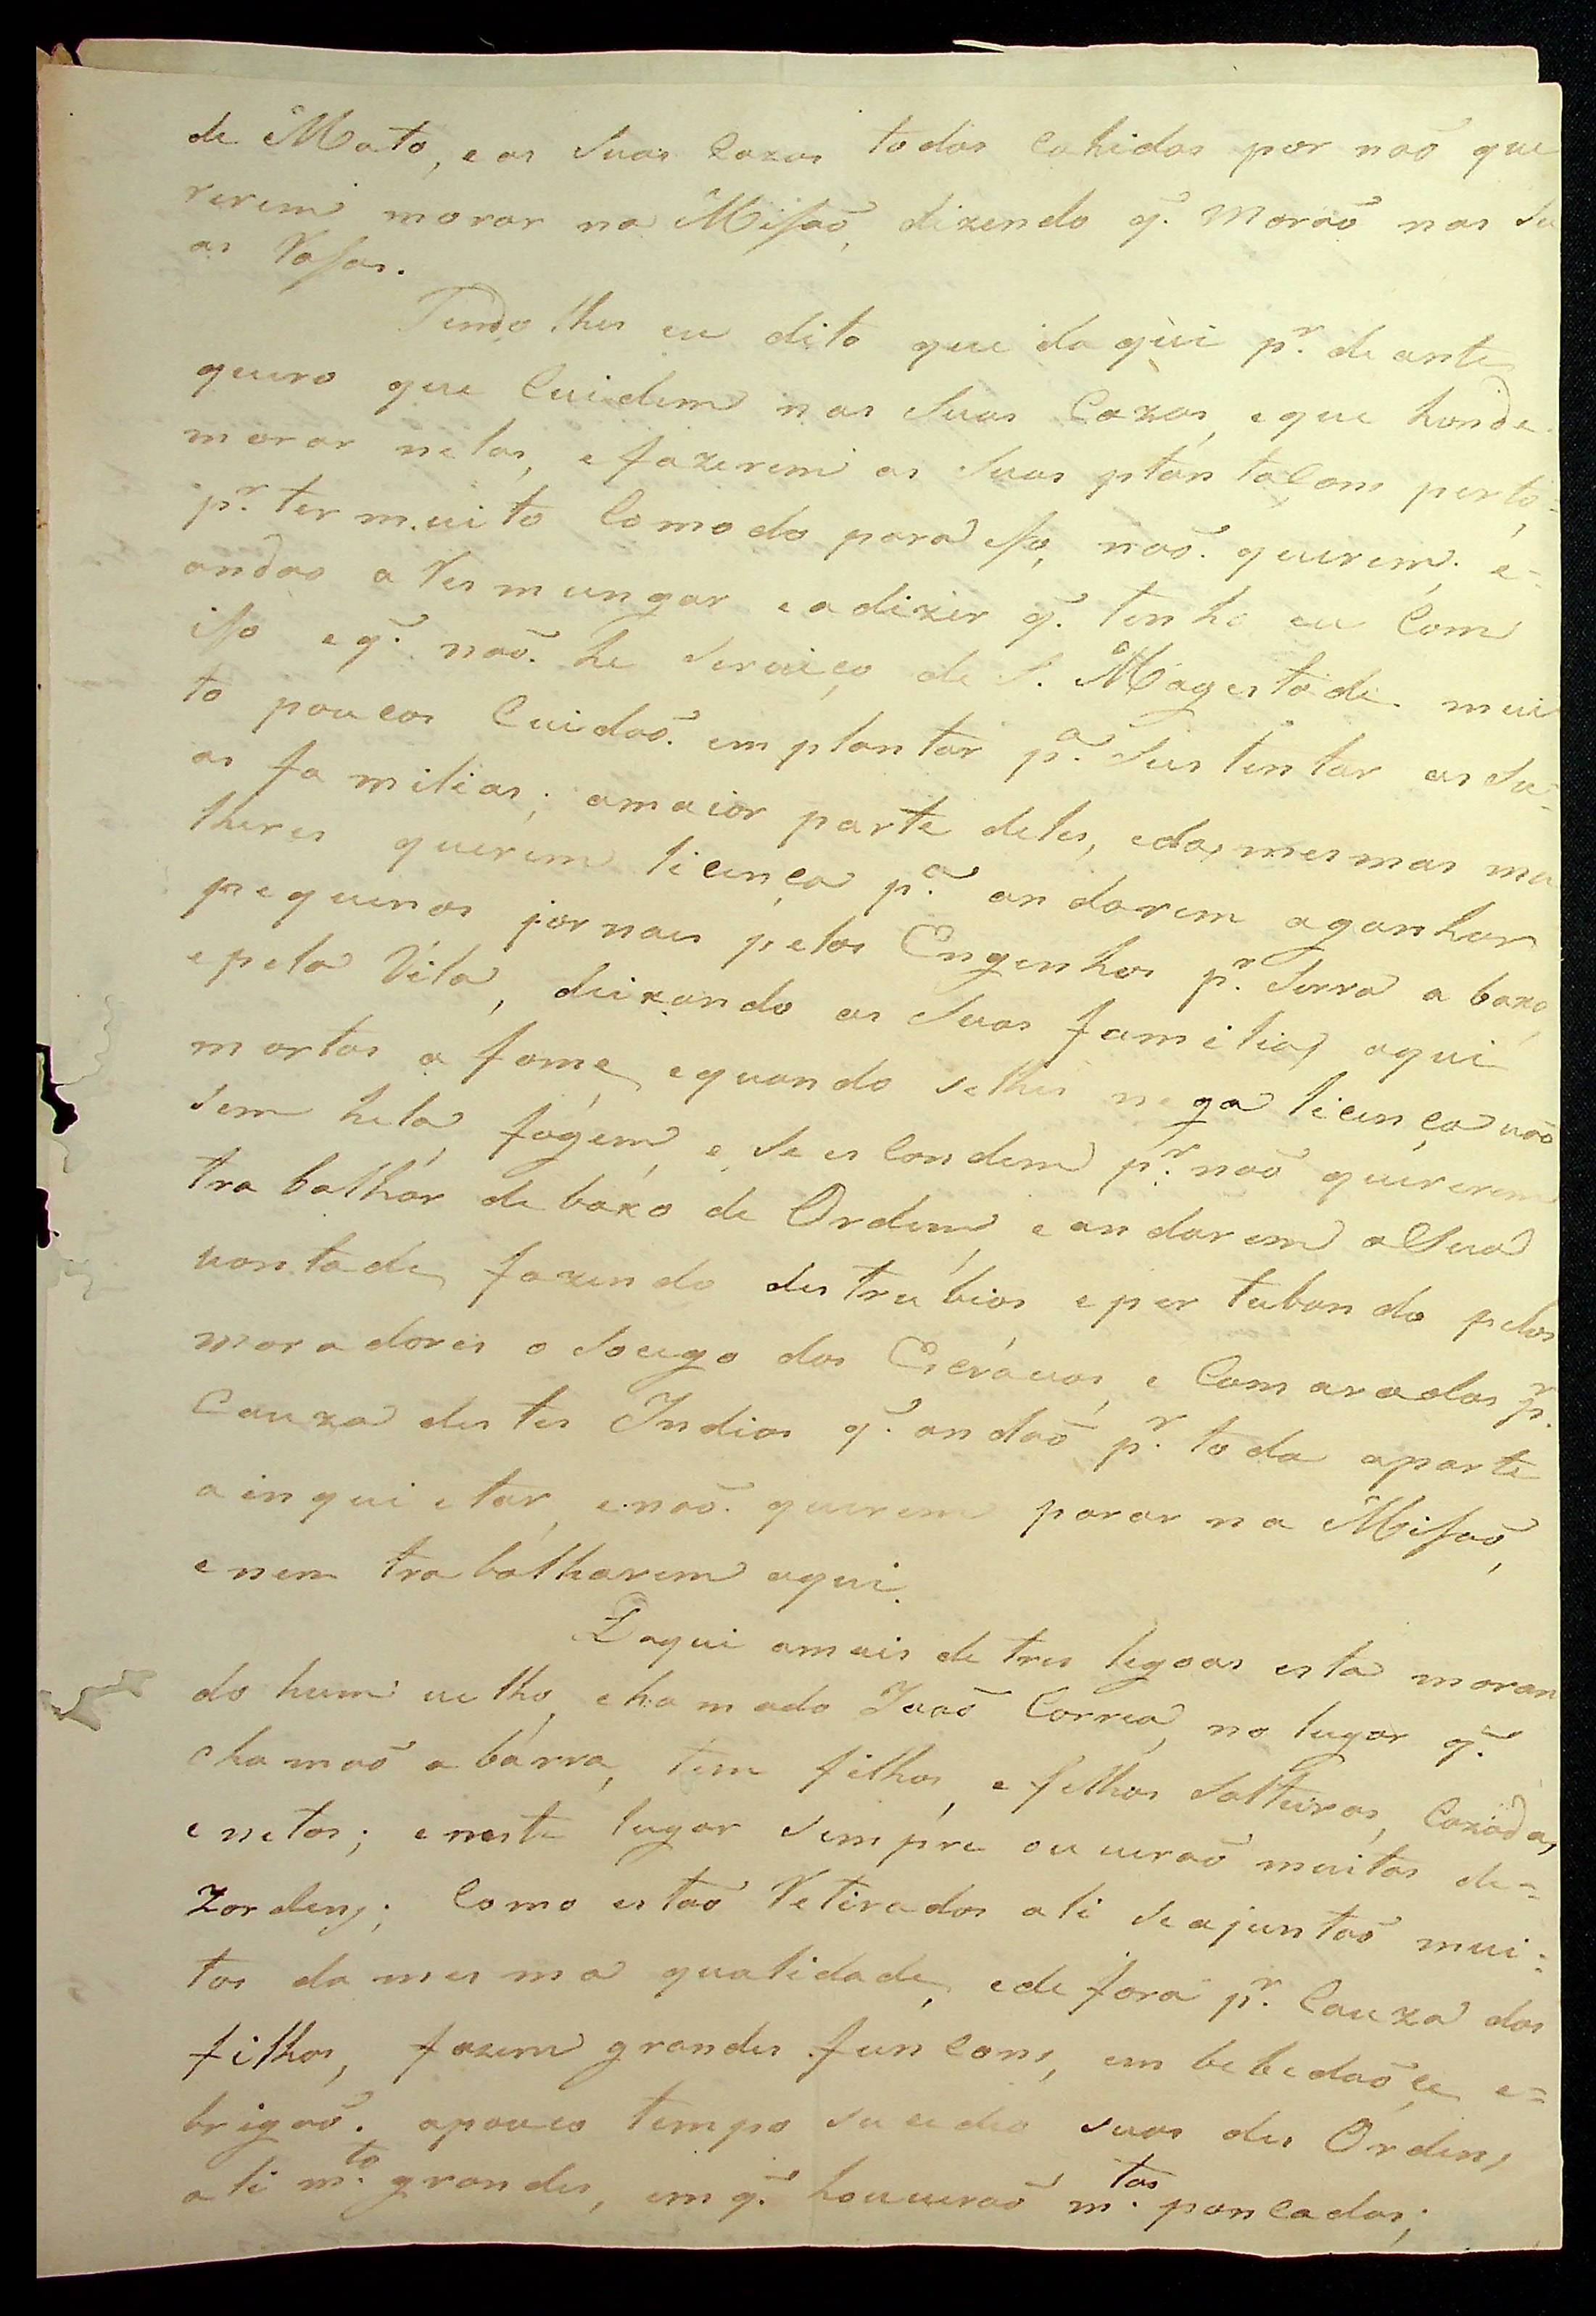 de Mato, e as suas Cazas todas Cahidas por naõ que
rerem morar na Misaõ, dizendo q̃. moraõ nas Su
as Rosas.
Tendo lhes eu dito que da qui pr. de ante
quero que Cuidem nas suas Cazas, eque honde
morar nelas, e fazerem as suas plantaçoins perto,=
pr. ter muito Comodo para iso, naõ. querem; e=
andaõ a Resmungar e a dizer q̃. tenho eu Com
iso e q̃. naõ. he serviço de S. Magestade. mui
to poucos Cuidaõ. em plantar pa. Sustentar as Su=
as familias; amaior parte deles, edas mesmas mu
lheres querem licença pa. andarem aganhar
pequenos jornais pelos Engenhos pr. Serra a baxo,
epela Vila, deixando as suas familias aqui
mortas a fome, equando selhes nega licença vaõ
sem hela, fogem, e se escondem pr. naõ quererem
trabalhar debaxo de Ordem e andarem a Sua
vontade fazendo destrubios e pertubando pelos
moradores o Socego dos Escravos, e Camaradas pr.
Cauza destes Indios q̃. andaõ pr. toda aparte
ainquietar, enaõ. querem parar na Misaõ,
enem trabalharem aqui.
Daqui amais de tres legoas esta moran
do hum velho chamado Joaõ Correa, no lugar q̃.
chamaõ a bárra, tem filhos, e filhas Solteiras, Cazadas,
enetos; eneste lugar sempre ouveraõ muitas de=
zordens; Como estaõ Retirados ali seajuntaõ mui=
tos da mesma qualidade, ede fora pr. Cauza das
filhas, fazem grandes funcons, em bebedaõ ce, e=
brigaõ. apouco tempo sucedeo suas des Ordens
ali mto. grandes, em q̃. houveraõ mtas. pancadas;